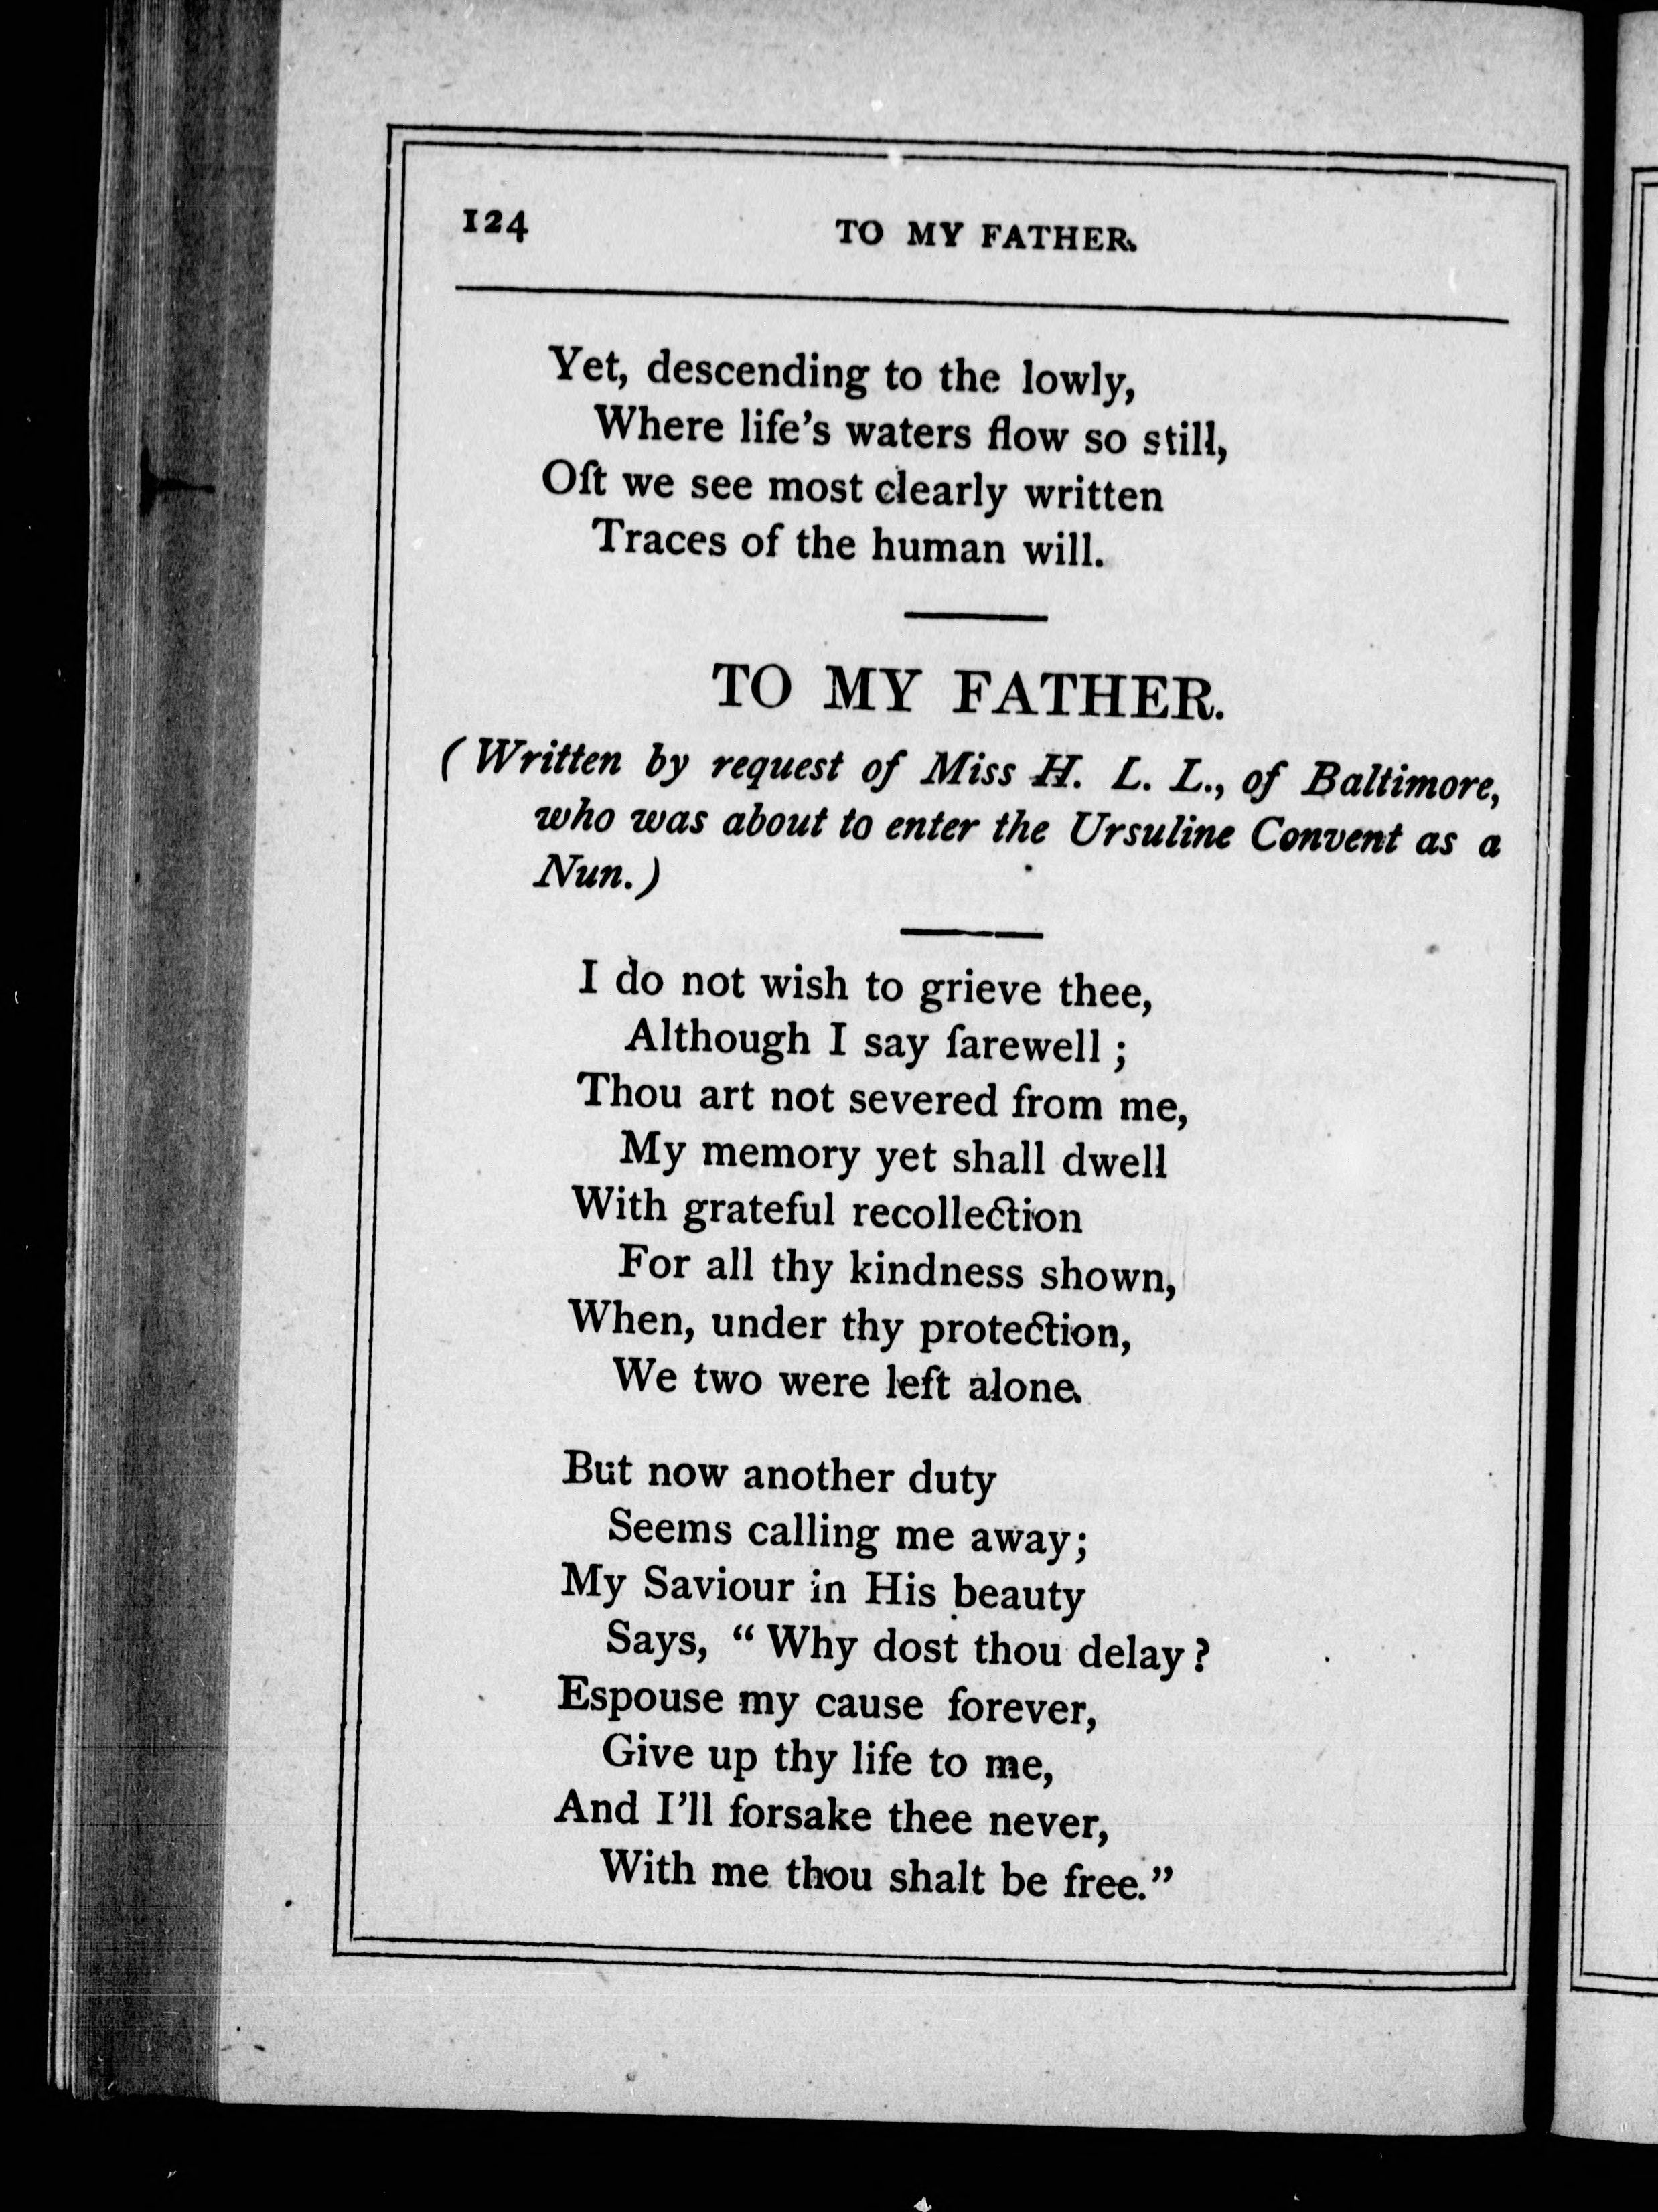 124
TO MY FATHER.
Yet, descending to the lowly,
Where life's waters flow so still,
Oft we see most clearly written
Traces of the human will.
TO MY FATHER.
(Written by request of Miss H. L. L., of Baltimore,
who was about to enter the Ursuline Convent as a
Nun.)
I do not wish to grieve thee,
Although I say farewell;
Thou art not severed from me,
My memory yet shall dwell
With grateful recollection
For all thy kindness shown,
When, under thy protection,
We two were left alone.
But now another duty
Seems calling me away;
My Saviour in His beauty
Says, “Why dost thou delay?
Espouse my cause forever,
Give up thy life to me,
And I'll forsake thee never,
With me thou shalt be free.”